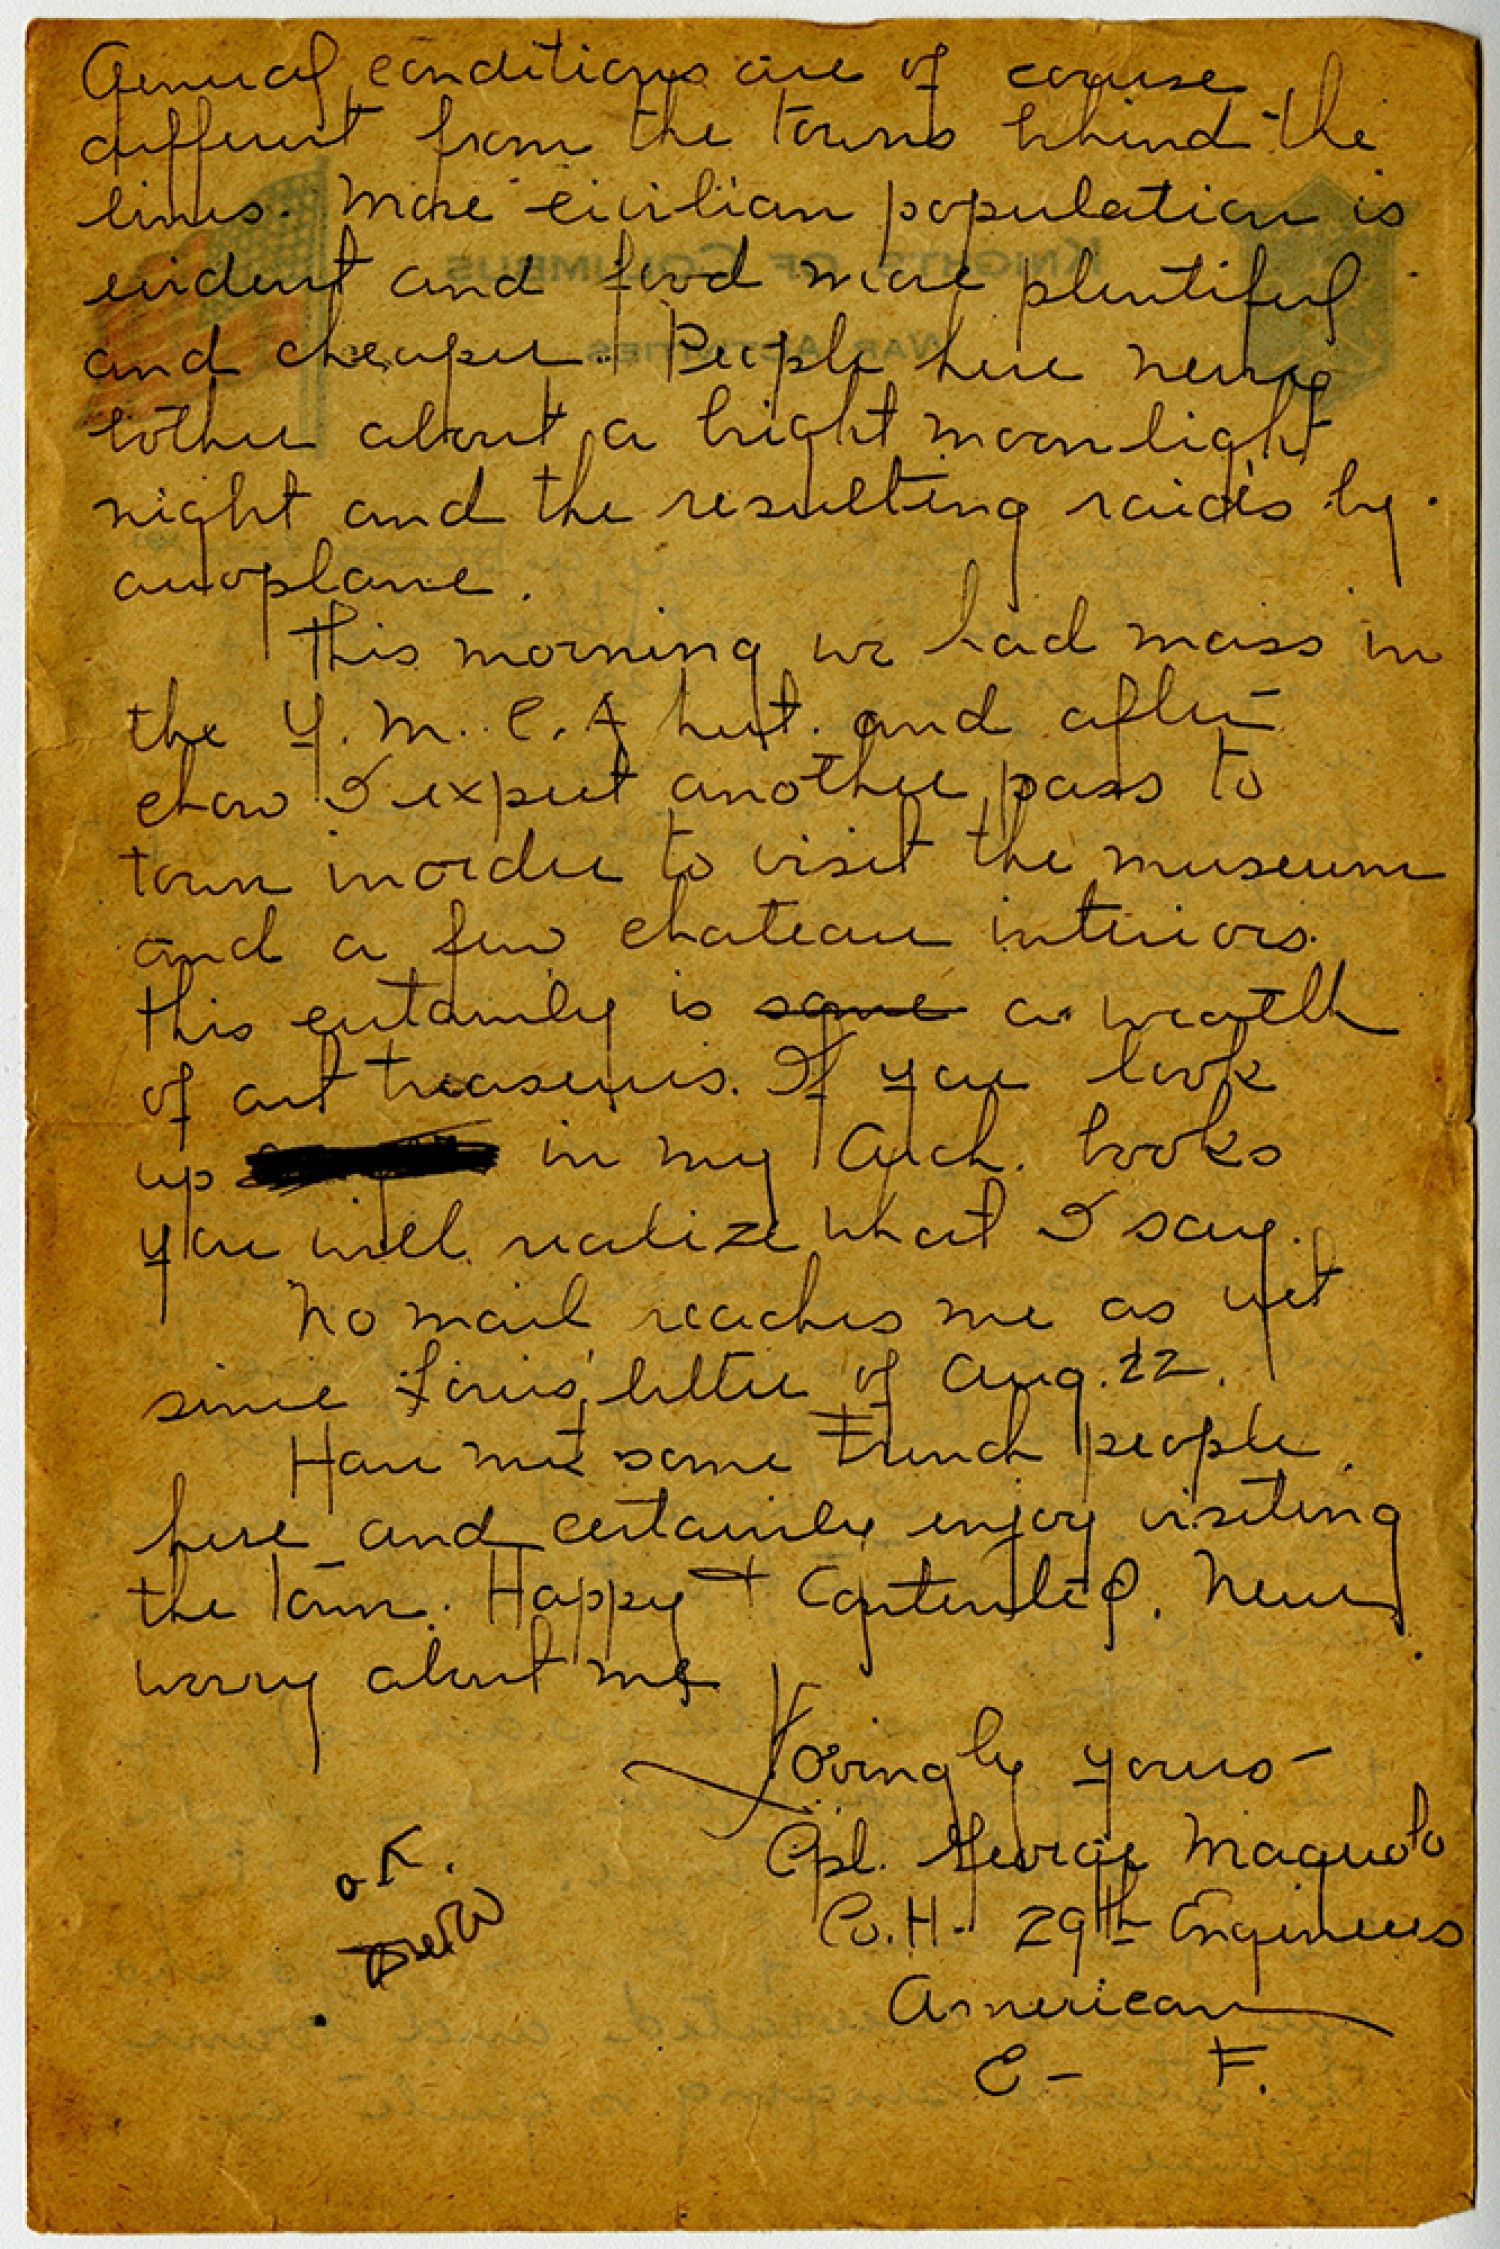 General conditions are of course
different from the towns behind the
lines. More civilian population is
evident and food more plentiful
and cheaper. People here never
bother about a bright moonlight
night and the resulting raids by
aeroplane.
This morning we had mass in
the Y. M. C. A hut. and after
chow I expect another pass to
town inorder to visit the museum
and a few chateau interiors.
This certainly is some a wealth
of art treasures. If you look
up in my Arch. books
you will realize what I say.
No mail reaches me as yet
since Loris' letter of Aug. 22.
Have met some French people
here and certainly enjoy visiting
the town. Happy + Contented. Never
worry about me
Lovingly yours -
Cpl. George Maguolo
Co. H - 29th Engineers
American
E - F.
O.K.
KNIGHTS OF COLUMBUS
WAR ACTIVITIES